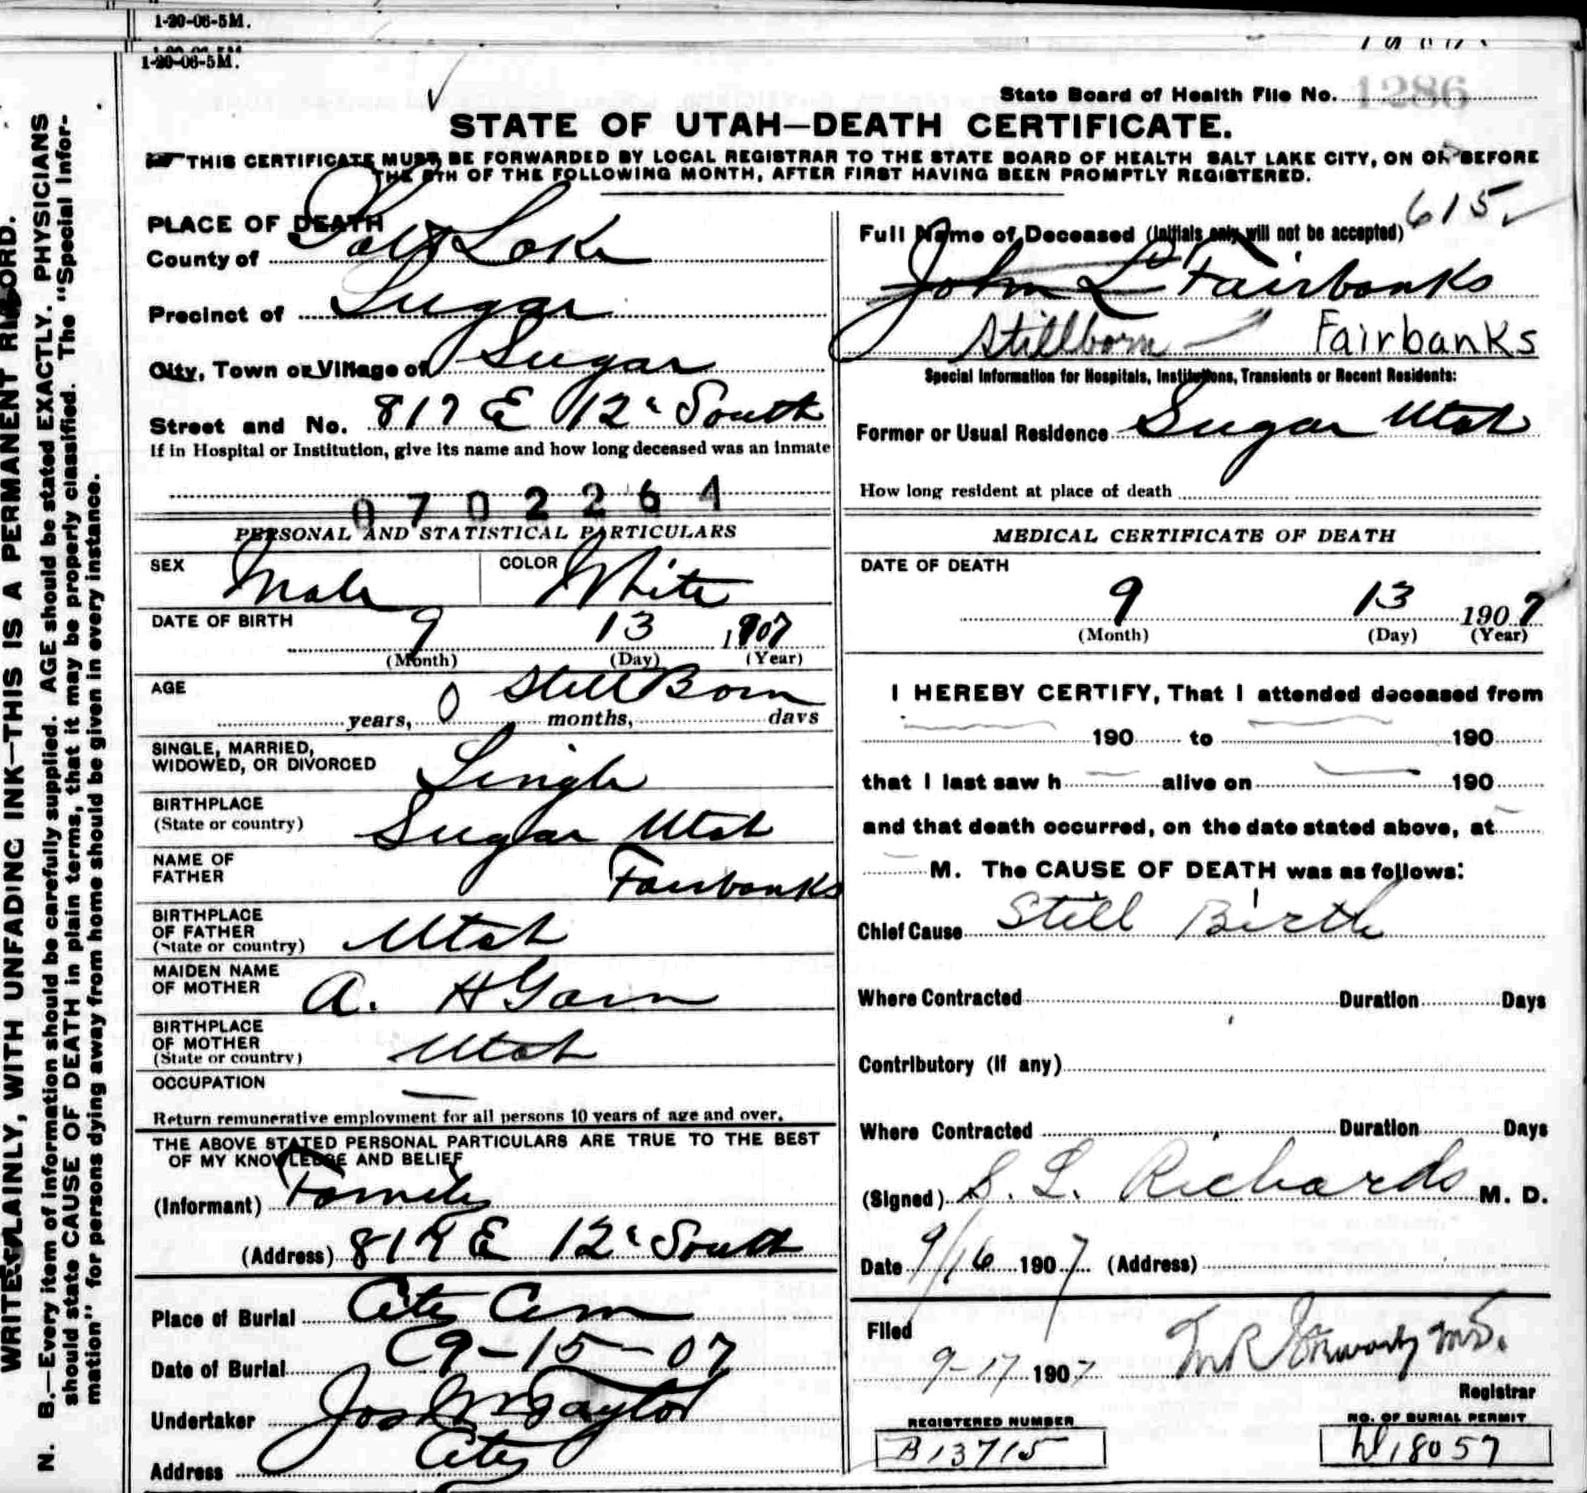 1-20-06-5M.
1-20-06-5M.
State Board of Health File No. 1286
STATE OF UTAH—DEATH CERTIFICATE.
THIS CERTIFICATE MUST BE FORWARDED BY LOCAL REGISTRAR TO THE STATE BOARD OF HEALTH SALT LAKE CITY, ON OR BEFORE
THE 5TH OF THE FOLLOWING MONTH, AFTER FIRST HAVING BEEN PROMPTLY REGISTERED.
WRITE PLAINLY, WITH UNFADING INK—THIS IS A PERMANENT RECORD.
N. B.—Every item of information should be carefully supplied. AGE should be stated EXACTLY. PHYSICIANS
should state CAUSE OF DEATH in plain terms, that it may be properly classified. The "Special Infor-
mation" for persons dying away from home should be given in every instance.
PLACE OF DEATH
County of Salt Lake
Precinct of Sugar
City, Town or Village of Sugar
Street and No. 819 E 12 South
If in Hospital or Institution, give its name and how long deceased was an inmate
0702264
PERSONAL AND STATISTICAL PARTICULARS
SEX Male COLOR White
DATE OF BIRTH 9 13 1907
(Month) (Day) (Year)
AGE Still Born
years, 0 months, days
SINGLE, MARRIED,
WIDOWED, OR DIVORCED Single
BIRTHPLACE
(State or country) Sugar Utah
NAME OF
FATHER Fairbanks
BIRTHPLACE
OF FATHER
(State or country) Utah
MAIDEN NAME
OF MOTHER A. H
BIRTHPLACE
OF MOTHER
(State or country) Utah
OCCUPATION —
Return remunerative employment for all persons 10 years of age and over.
THE ABOVE STATED PERSONAL PARTICULARS ARE TRUE TO THE BEST
OF MY KNOWLEDGE AND BELIEF
(Informant) Family
(Address) 819 E 12 South
Place of Burial City Cem
Date of Burial 9-15-07
Undertaker Jos Wm Taylor
Address City
615
Full Name of Deceased (Initials only will not be accepted)
John L Fairbanks
Stillborn — Fairbanks
Special Information for Hospitals, Institutions, Transients or Recent Residents:
Former or Usual Residence Sugar Utah
How long resident at place of death
MEDICAL CERTIFICATE OF DEATH
DATE OF DEATH
9 13 1907
(Month) (Day) (Year)
I HEREBY CERTIFY, That I attended deceased from
190 to 190
that I last saw h alive on 190
and that death occurred, on the date stated above, at
M. The CAUSE OF DEATH was as follows:
Chief Cause Still Birth
Where Contracted Duration Days
Contributory (if any)
Where Contracted Duration Days
(Signed) S. L. Richards M. D.
Date 9/16 1907 (Address)
Filed
9-17 1907
Registrar
REGISTERED NUMBER
B13715
NO. OF BURIAL PERMIT
18057